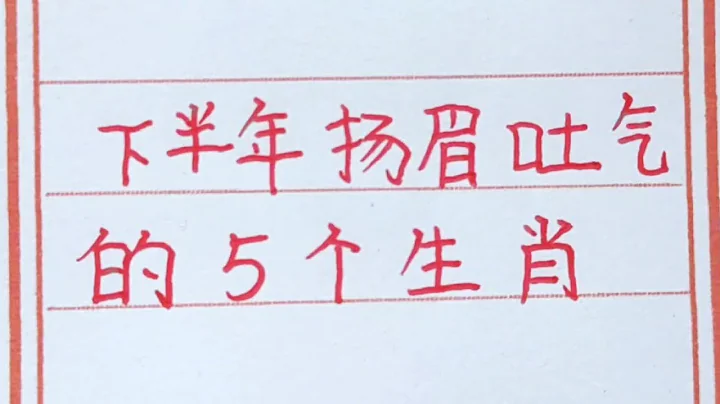 下半年扬眉吐气
的5个生肖